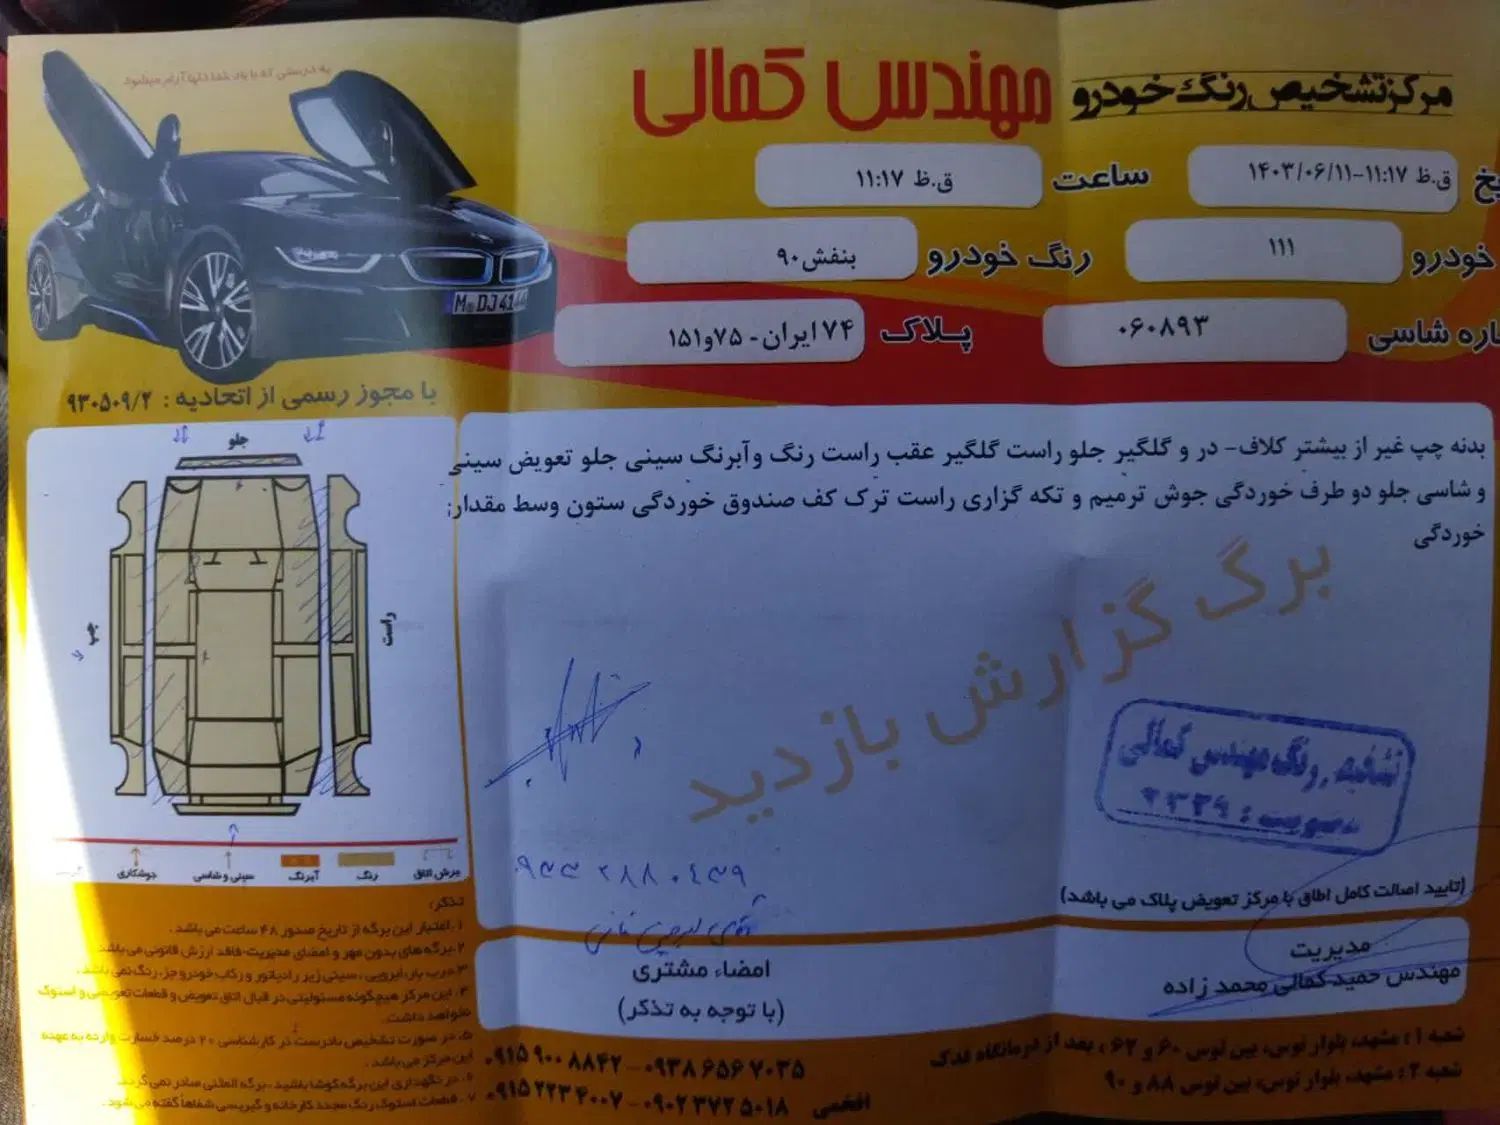 به درستی که با یاد خدا دلها آرام میشود
مرکز تشخیص رنگ خودرو
مهندس کمالی
یخ ۱۴۰۳/۰۶/۱۱-۱۱:۱۷ ق.ظ
ساعت ۱۱:۱۷ ق.ظ
خودرو ۱۱۱
رنگ خودرو بنفش۹۰
اره شاسی ۰۶۰۸۹۳
پـلاک ۷۴ ایران - ۷۵و۱۵۱
M DJ 41
با مجوز رسمی از اتحادیه : ۹۳۰۵۰۹/۲
بدنه چپ غیر از بیشتر کلاف- در و گلگیر جلو راست گلگیر عقب راست رنگ وآبرنگ سینی جلو تعویض سینی
و شاسی جلو دو طرف خوردگی جوش ترمیم و تکه گزاری راست ترک کف صندوق خوردگی ستون وسط مقدار
خوردگی
جلو
چپ
راست
برش اتاق
رنگ
آبرنگ
سینی و شاسی
جوشکاری
برگ گزارش بازدید
تشخیص رنگ مهندس کمالی
عضویت : ۲۳۳۹
(تایید اصالت کامل اطاق با مرکز تعویض پلاک می باشد)
مدیریت
مهندس حمید کمالی محمد زاده
امضاء مشتری
(با توجه به تذکر)
تذکر:
۱. اعتبار این برگه از تاریخ صدور ۴۸ ساعت می باشد .
۲. برگه های بدون مهر و امضای مدیریت فاقد ارزش قانونی می باشد
۳. درب بار، ابرویی ، سینی زیر رادیاتور و رکاب خودرو جزء رنگ نمی باشد .
۴. این مرکز هیچگونه مسئولیتی در قبال اتاق تعویض و قطعات تعویضی و استوک
نخواهد داشت.
۵. در صورت تشخیص نادرست در کارشناسی ۲۰ درصد خسارت وارده به عهده
این مرکز می باشد .
۶. در نگهداری این برگه کوشا باشید ، برگه المثنی صادر نمی گردد
۷. قطعات استوک رنگ مجدد کارخانه و گیریسی شفاها گفته می شود .
شعبه ۱ : مشهد، بلوار توس، بین توس ۶۰ و ۶۲ ، بعد از درمانگاه فدک
شعبه ۲ : مشهد، بلوار توس، بین توس ۸۸ و ۹۰
۰۹۱۵ ۹۰۰ ۸۸۴۲ - ۰۹۳۸ ۶۵۶ ۷۰۳۵
۰۹۱۵ ۲۲۳ ۴۰۰۷ - ۰۹۰۲ ۳۷۲ ۵۰۱۸ افخمی